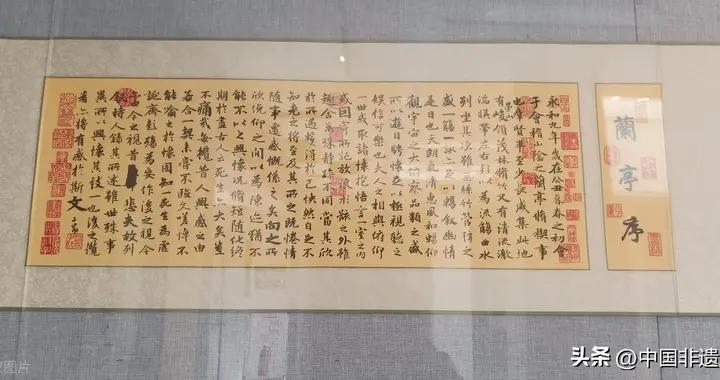 蘭亭序
永和九年歲在癸丑暮春之初會
于會稽山陰之蘭亭脩禊事
也羣賢畢至少長咸集此地
有崇山峻領茂林脩竹又有清流激
湍暎帶左右引以為流觴曲水
列坐其次雖無絲竹管弦之
盛一觴一詠亦足以暢敘幽情
是日也天朗氣清惠風和暢仰
觀宇宙之大俯察品類之盛
所以遊目騁懷足以極視聽之
娛信可樂也夫人之相與俯仰
一世或取諸懷抱悟言一室之內
或因寄所託放浪形骸之外雖
趣舍萬殊靜躁不同當其欣
於所遇蹔得於己怏然自足不
知老之將至及其所之既倦情
隨事遷感慨係之矣向之所
欣俛仰之間以為陳迹猶不
能不以之興懷況脩短隨化終
期於盡古人云死生亦大矣豈
不痛哉每攬昔人興感之由
若合一契未嘗不臨文嗟悼不
能喻之於懷固知一死生為虛
誕齊彭殤為妄作後之視今
亦由今之視昔悲夫故列
敘時人錄其所述雖世殊事
異所以興懷其致一也後之攬
者亦將有感於斯文
图片
头条 @中国非遗